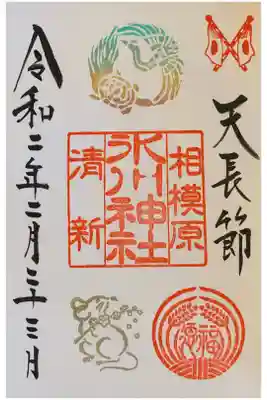 天長節
相模原
氷川神社
清新
令和二年二月二十三日